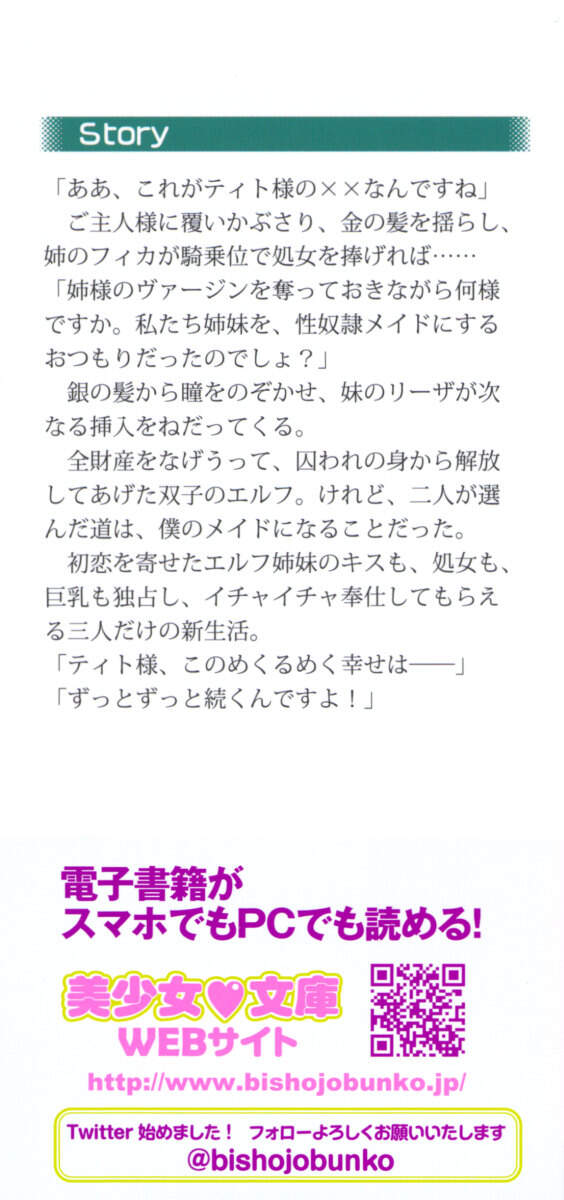 Story
「ああ、これがティト様の××なんですね」
ご主人様に覆いかぶさり、金の髪を揺らし、
姉のフィカが騎乗位で処女を捧げれば……
「姉様のヴァージンを奪っておきながら何様
ですか。私たち姉妹を、性奴隷メイドにする
おつもりだったのでしょ？」
銀の髪から瞳をのぞかせ、妹のリーザが次
なる挿入をねだってくる。
全財産をなげうって、囚われの身から解放
してあげた双子のエルフ。けれど、二人が選
んだ道は、僕のメイドになることだった。
初恋を寄せたエルフ姉妹のキスも、処女も、
巨乳も独占し、イチャイチャ奉仕してもらえ
る三人だけの新生活。
「ティト様、このめくるめく幸せは――」
「ずっとずっと続くんですよ！」
電子書籍が
スマホでもPCでも読める!
美少女♥文庫
WEBサイト
http://www.bishojobunko.jp/
Twitter 始めました！ フォローよろしくお願いいたします
@bishojobunko